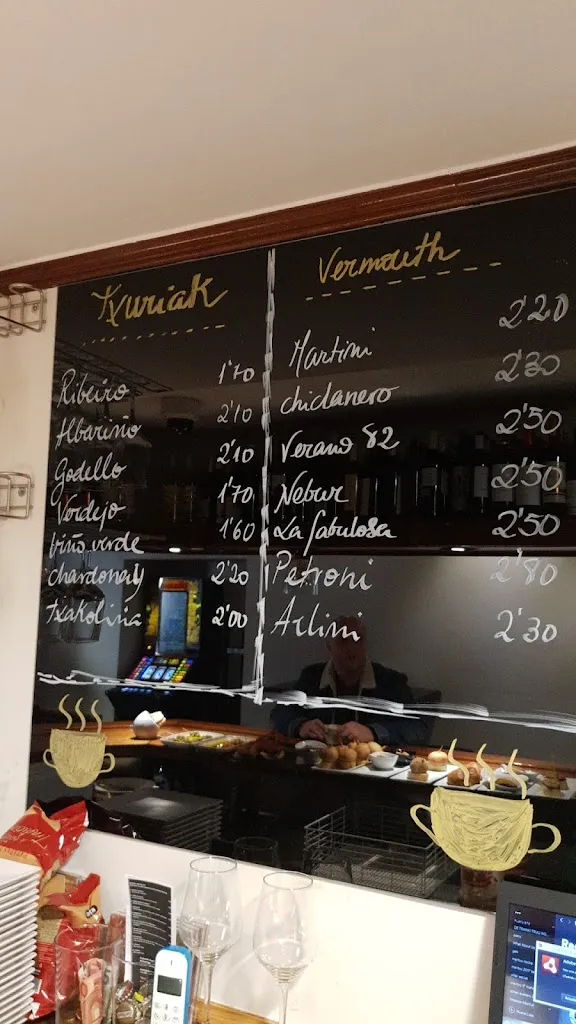 Txuriak
Ribeiro 1'70
Albariño 2'10
Godello 2'10
Verdejo 1'70
biño verde 1'60
chardonay 2'20
txakolina 2'00
Vermouth
Martini 2'20
chiclanero 2'30
Verano 82 2'50
Nebur 2'50
La fabulosa 2'50
Petroni 2'80
Arlini 2'30